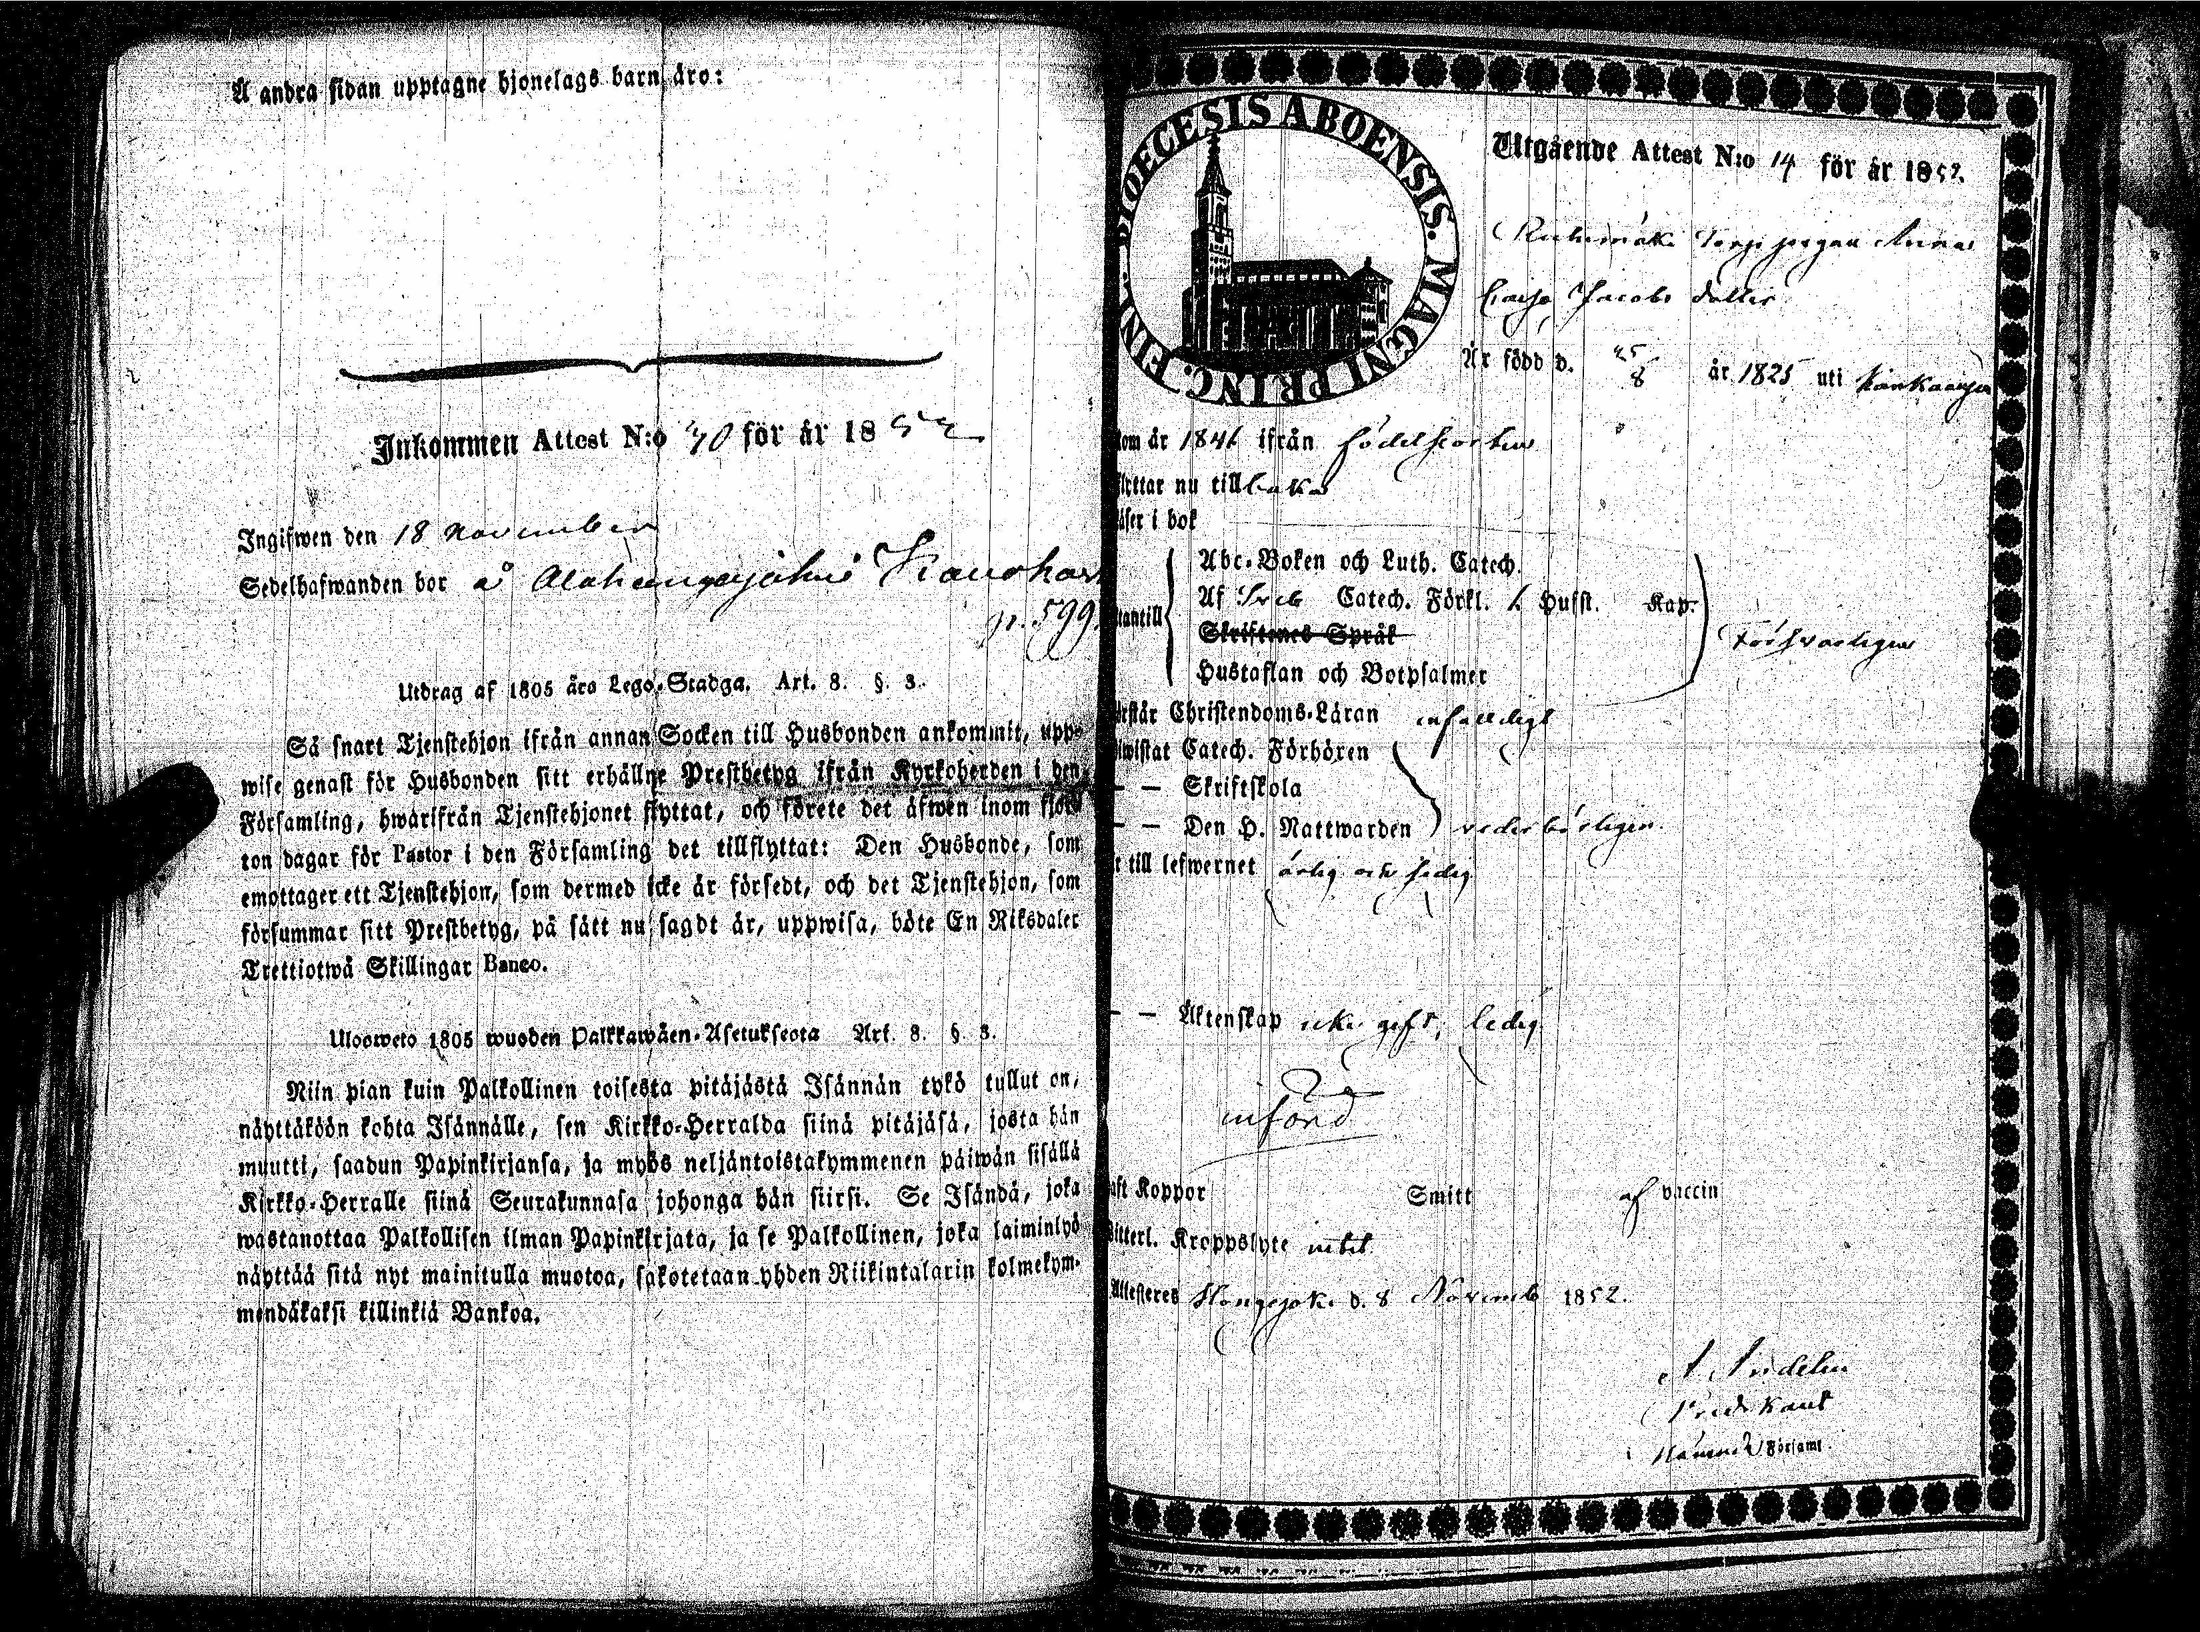 Å andra sidan upptagne hjonelags barn äro:
Inkommen Attest N:o 70 för år 1852
Ingifwen den 18 November
Sedelhafwanden bor å Alakangasjärwi
p. 599.
Utdrag af 1805 åra Lego-Stadga. Art. 8. §. 3.
Så snart Tjenstehjon ifrån annan Socken till Husbonden ankommit, upp-
wise genast för Husbonden sitt erhållne Prestbetyg ifrån Kyrkoherden i den
Församling, hwarifrån Tjenstehjonet flyttat, och förete det äfwen inom fjor-
ton dagar för Pastor i den Församling det tillflyttat: Den Husbonde, som
emottager ett Tjenstehjon, som dermed icke är försedt, och det Tjenstehjon, som
försummar sitt Prestbetyg, på sätt nu sagdt är, uppwisa, böte En Riksdaler
Trettiotwå Skillingar Banco.
Uloosweto 1805 wuoden Palkkawäen-Asetuksesta Art. 8. §. 3.
Niin pian kuin Palkollinen toisesta pitäjästä Isännän tykö tullut on,
näyttäköön kohta Isännälle, sen Kirkko-Herralda siinä pitäjäsä, josta hän
muutti, saadun Papinkirjansa, ja myös neljäntoistakymmenen päiwän sisällä
Kirkko-Herralle siinä Seurakunnasa johonga hän siirsi. Se Isändä, joka
wastanottaa Palkollisen ilman Papinkirjata, ja se Palkollinen, joka laiminlyö
näyttää sitä nyt mainitulla muotoa, sakotetaan yhden Riikintalarin kolmekym-
mendäkaksi killinkiä Bankoa.
DIOECESIS ABOENSIS. MAGNI PRINC. FINL.
Utgående Attest N:o 14 för år 1852.
pigan Anna
Caisa Jacobs dotter
Är född d. 25/8 år 1825 uti Kankaanpä
kom år 1846 ifrån födelseorten
flyttar nu tillbaka
läser i bok
utantill
Abc-Boken och Luth. Catech.
Af Sveb Catech. Förkl. Husst. Kap.
Skriftenes Språk
Hustaflan och Botpsalmer
Försvarligen
förstår Christendoms-Läran enfaldigt
biwistat Catech. Förhören
— — Skriftskola
— — Den H. Nattwarden vederbörligen
är till lefwernet ärlig och sedig
— — Äktenskap icke gift, ledig
införd
haft Koppor Smitt af vaccin
Witterl. Kroppslyte intet
Attesteras Hongojoki d. 8 Novemb 1852.
Predikant
i Församl.